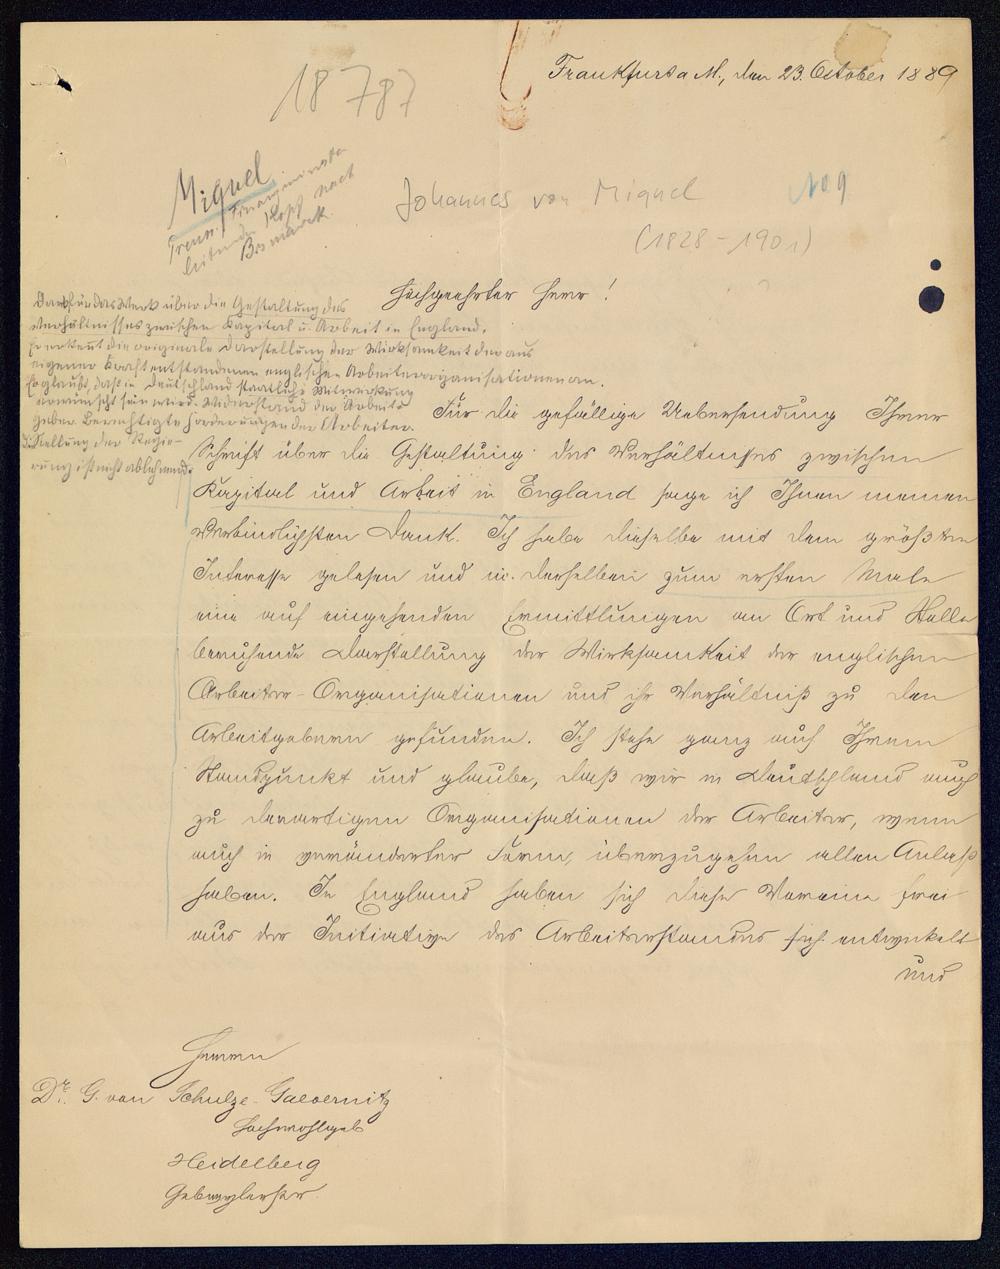 Frankfurt a M., den 23. October 1889
18 787
Miquel
Preuss. Finanzminister
leitender Kopf nach
Bismarck.
Johannes von Miquel
(1828-1901)
No 9
Hochgeehrter Herr!
Dank für das Werk über die Gestaltung des
Verhältnisses zwischen Kapital u. Arbeit in England.
Er erkennt die originale Darstellung der Wirksamkeit der aus
eigener Kraft entstandenen englischen Arbeiterorganisationen an.
Er glaubt, dass in Deutschland staatliche Mitwirkung
erwünscht sein wird. Widerstand der Arbeit-
geber. Berechtigte Forderungen der Arbeiter.
Stellung der Regie-
rung ist nicht ablehnend.
Für die gefällige Uebersendung Ihrer
Schrift über die Gestaltung des Verhältnisses zwischen
Kapital und Arbeit in England sage ich Ihnen meinen
verbindlichsten Dank. Ich habe dieselbe mit dem größten
Interesse gelesen und in derselben zum ersten Male
eine auf eingehenden Ermittlungen an Ort und Stelle
beruhende Darstellung der Wirksamkeit der englischen
Arbeiter-Organisationen und ihr Verhältniß zu den
Arbeitgebern gefunden. Ich stehe ganz auf Ihrem
Standpunkt und glaube, daß wir in Deutschland auch
zu derartigen Organisationen der Arbeiter, wenn
auch in veränderter Form, überzugehen allen Anlaß
haben. In England haben sich diese Vereine frei
aus der Initiative des Arbeiterstandes sich entwickelt
und
Herrn
Dr. G. von Schulze-Gaevernitz
Hochwohlgeb
Heidelberg